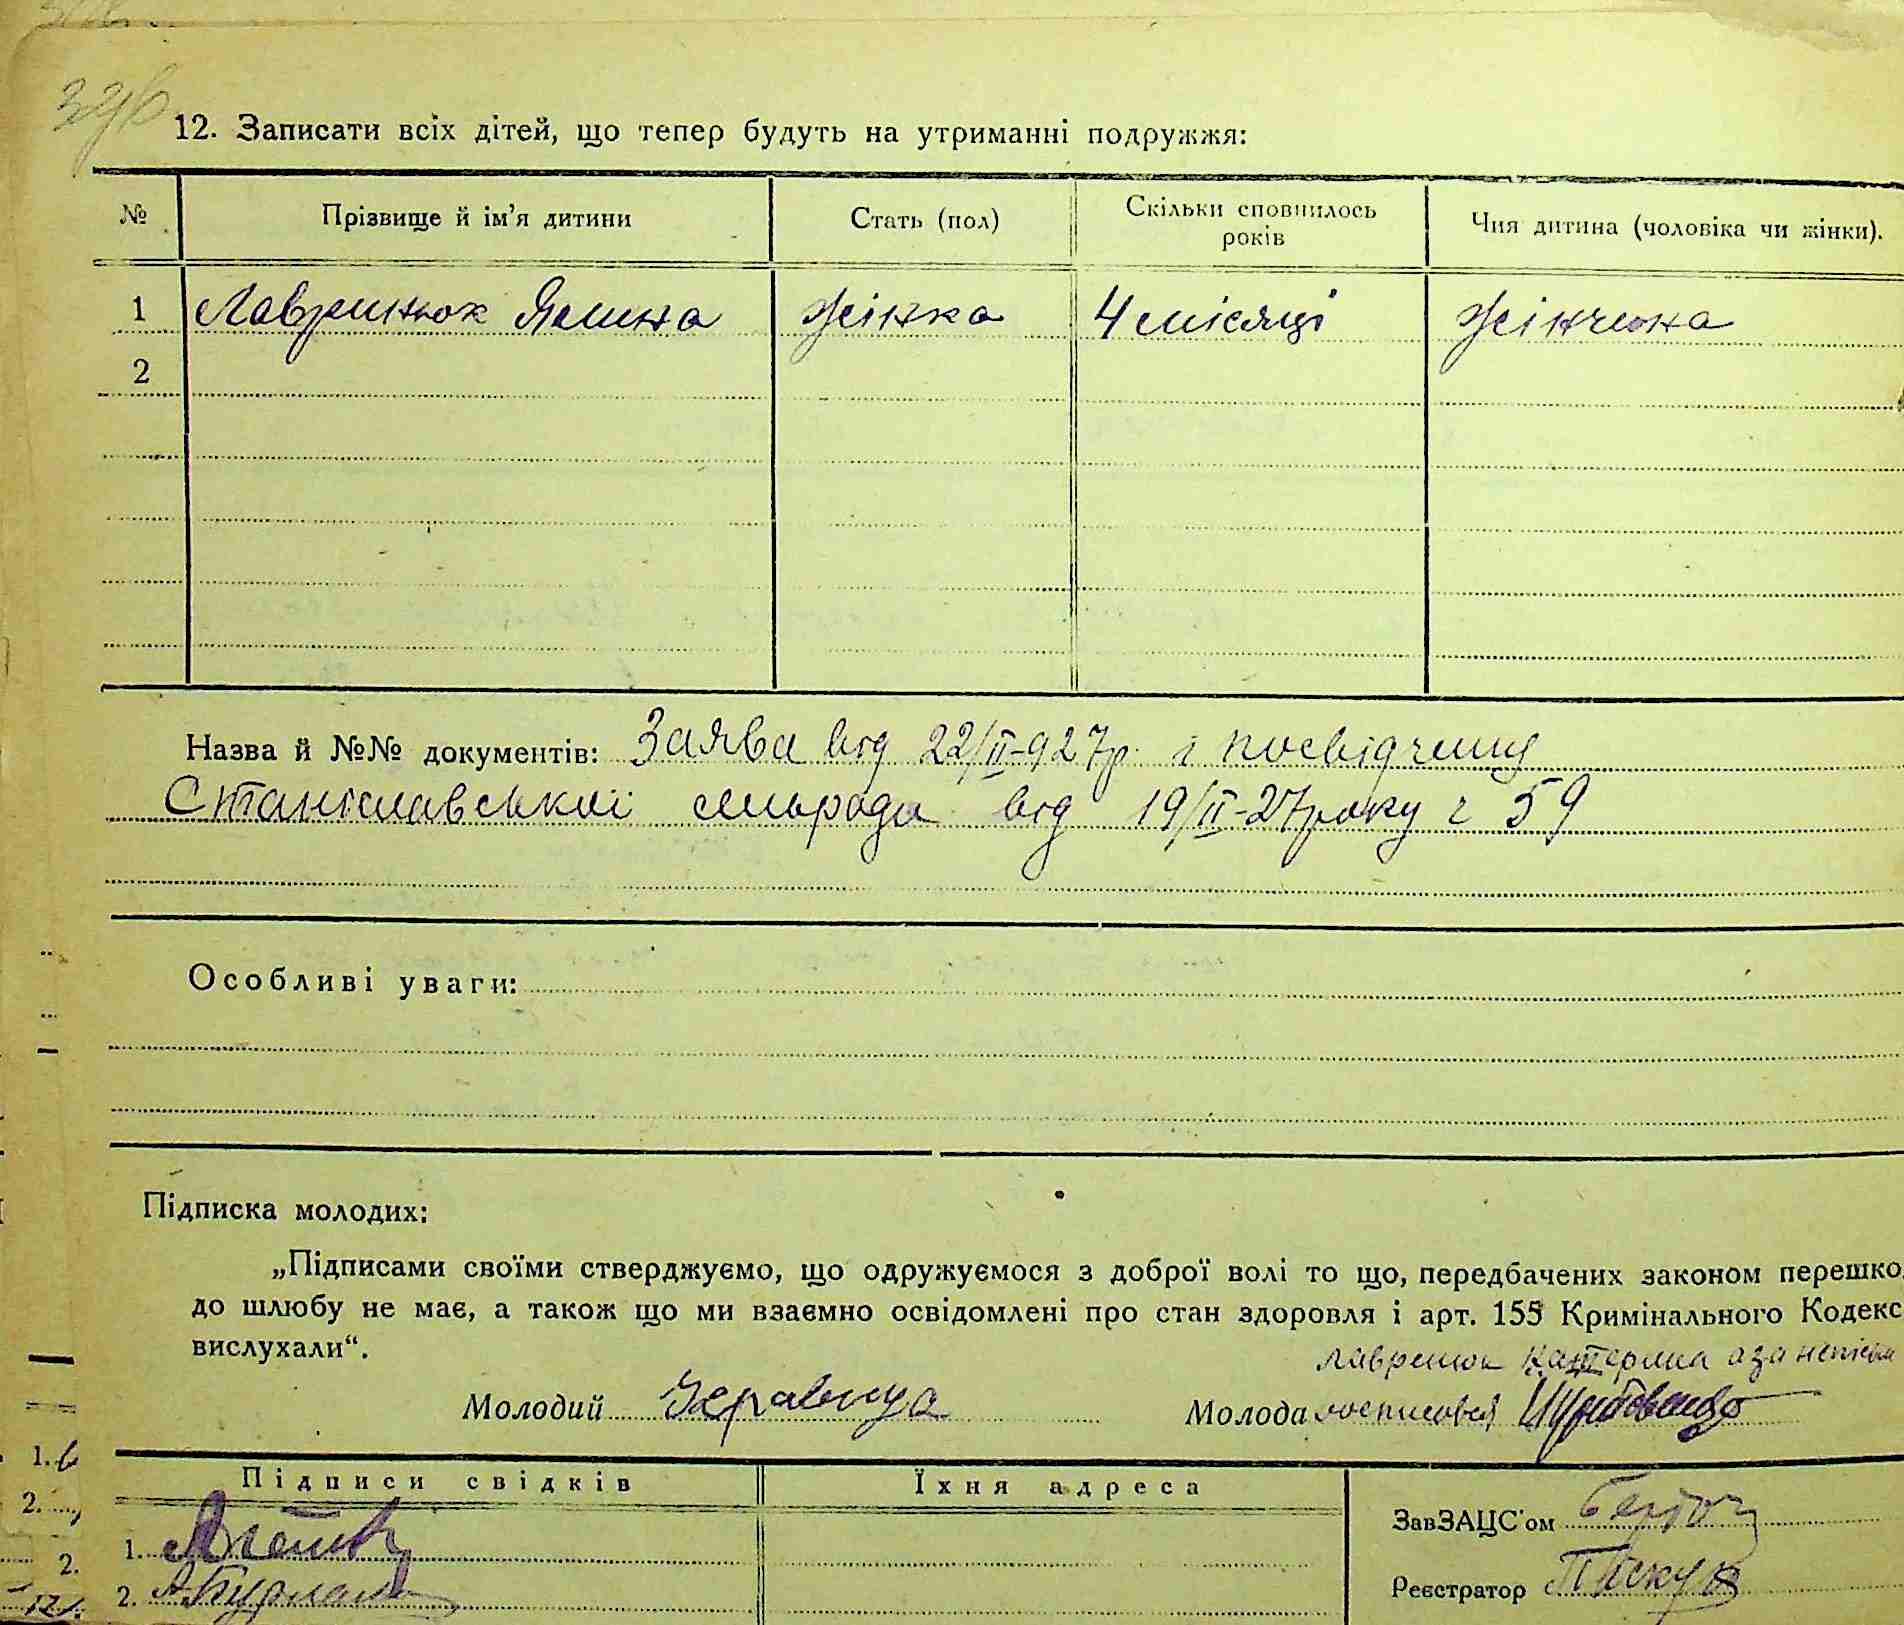 12. Записати всіх дітей, що тепер будуть на утриманні подружжя:
№ Прізвище й ім’я дитини Стать (пол) Скільки сповнилось років Чия дитина (чоловіка чи жінки).
1 Лавринюк Ялина жінка 4 місяці жіночина
2
Назва й №№ документів: Заява від 22/II-927р. і посвідчиц
Станіславської сільради від 19/II-27року ч 59
Особливі уваги:
Підписка молодих:
„Підписами своїми стверджуємо, що одружуємося з доброї волі то що, передбачених законом перешко
до шлюбу не має, а також що ми взаємно освідомлені про стан здоровля і арт. 155 Кримінального Кодекс
вислухали“.
Лавренюк Катерина а за неписьм
Молодий Молода росписався
Підписи свідків Їхня адреса
ЗавЗАЦС’ом
1.
Реєстратор
2.